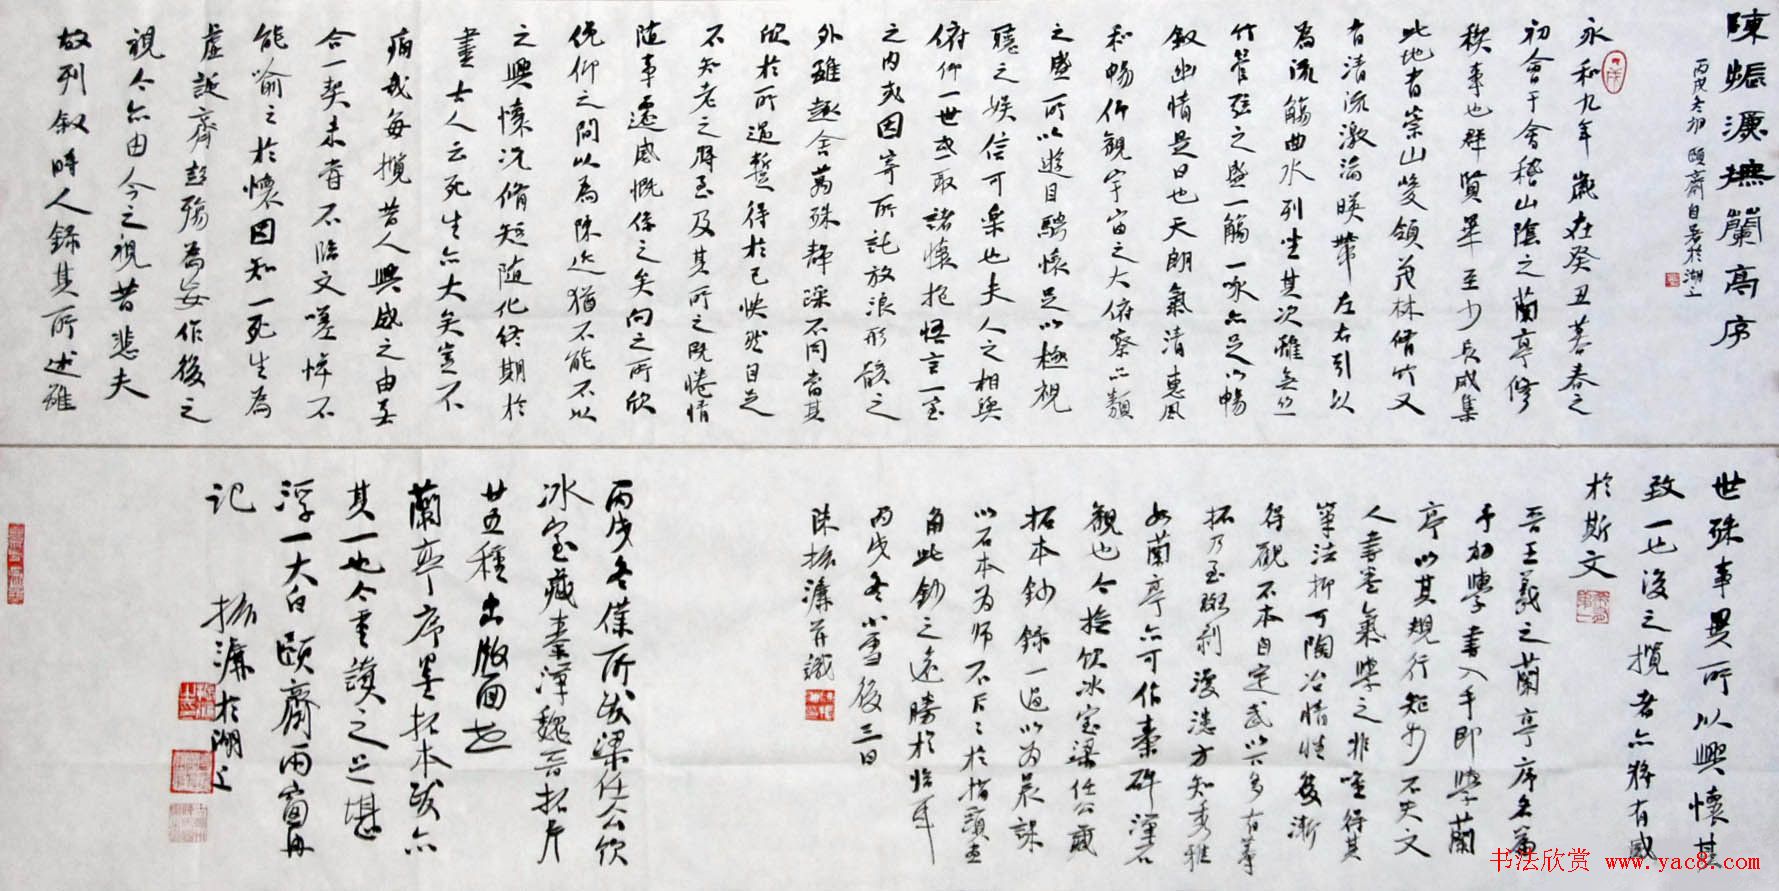 陳振濂撫蘭亭序
丙戌冬初頤齋自署於湖上
永和九年歲在癸丑暮春之
初會于會稽山陰之蘭亭修
稧事也群賢畢至少長咸集
此地有崇山峻領茂林脩竹又
有清流激湍暎帶左右引以
為流觴曲水列坐其次雖無絲
竹管弦之盛一觴一咏亦足以暢
敘幽情是日也天朗氣清惠風
和暢仰觀宇宙之大俯察品類
之盛所以遊目騁懷足以極視
聽之娛信可樂也夫人之相與
俯仰一世或取諸懷抱悟言一室
之內或因寄所託放浪形骸之
外雖趣舍萬殊靜躁不同當其
欣於所遇暫得於己怏然自足
不知老之將至及其所之既惓情
隨事遷感慨係之矣向之所欣
俛仰之間以為陳迹猶不能不以
之興懷況脩短隨化終期於
盡古人云死生亦大矣豈不
痛哉每攬昔人興感之由若
合一契未嘗不臨文嗟悼不
能喻之於懷固知一死生為
虛誕齊彭殤為妄作後之
視今亦由今之視昔悲夫
故列敘時人錄其所述雖
世殊事異所以興懷其
致一也後之攬者亦將有感
於斯文
晉王羲之蘭亭序名篇
予初學書入手即學蘭
亭以其規行矩步不失文
人書卷氣學之非唯得其
筆法抑可陶冶情性後漸
得觀不本自定武以
拓乃至斑剝漫漶方知秀雅
如蘭亭亦可作秦碑漢石
觀也今撿飲冰室梁任公藏
拓本鈔錄一過以為晨課
以石本為師不
角此鈔之遠勝於臨耳
丙戌冬小雪後三日
陳振濂並識
丙戌冬僕所跋梁任公飲
冰室藏秦漢魏晉拓片
廿五種出版面世
蘭亭序墨拓本跋亦
其一也今重讀之足堪
浮一大白頤齋雨窗再
記 振濂於湖上
书法欣赏 www.yac8.com